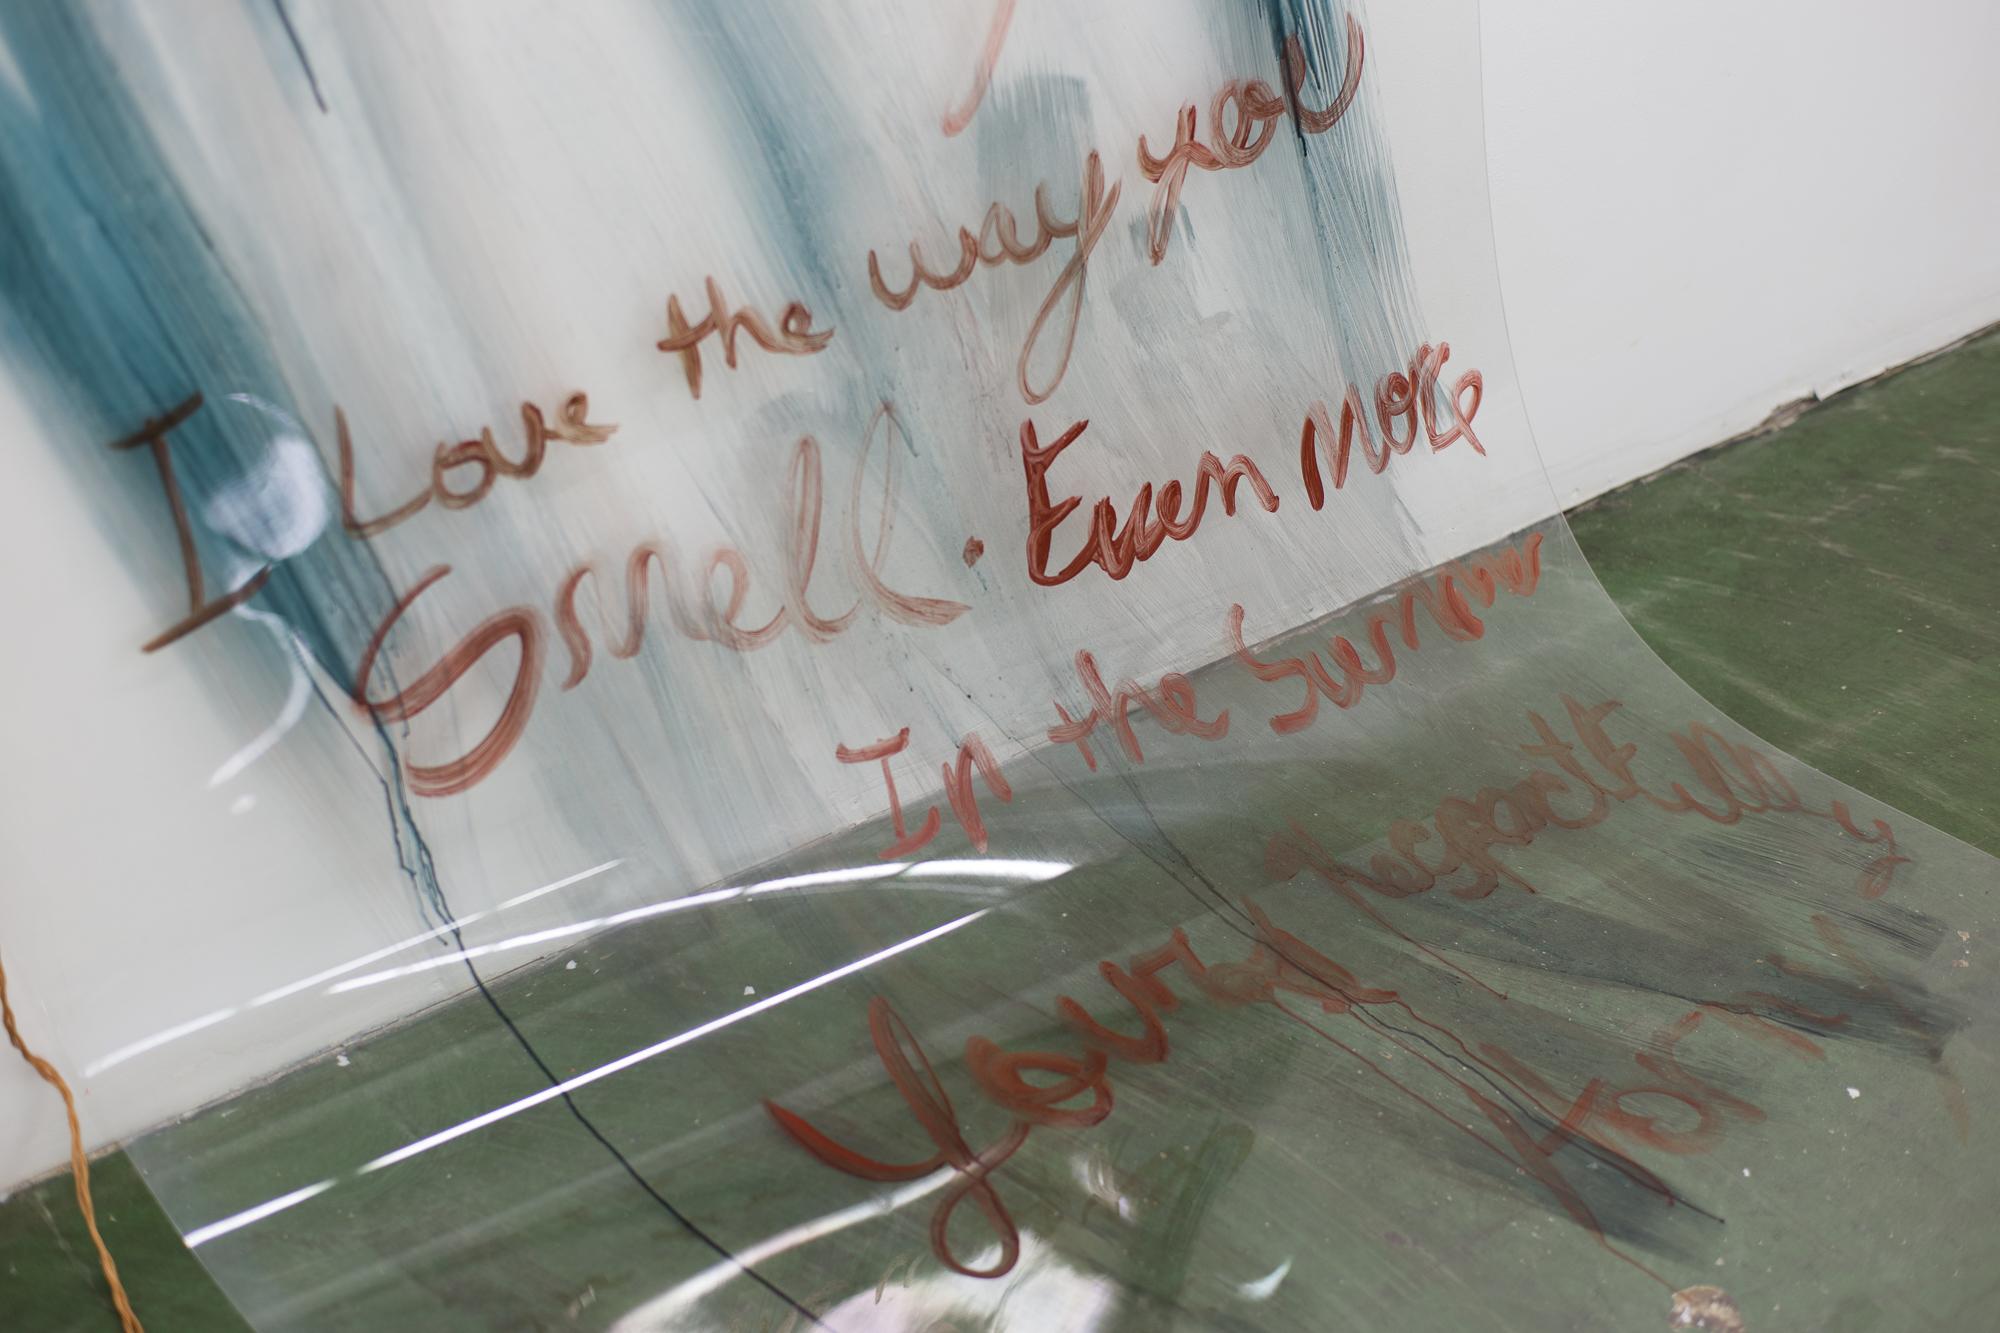 I Love the way you
Smell. Even More
In the Summer
Your respectfully